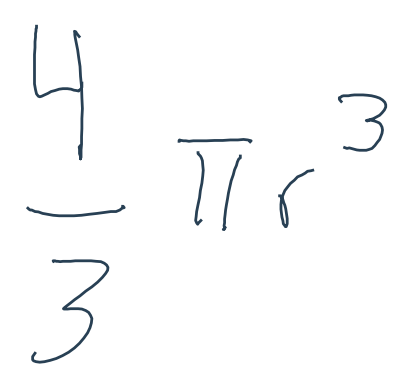 4/3 πr³